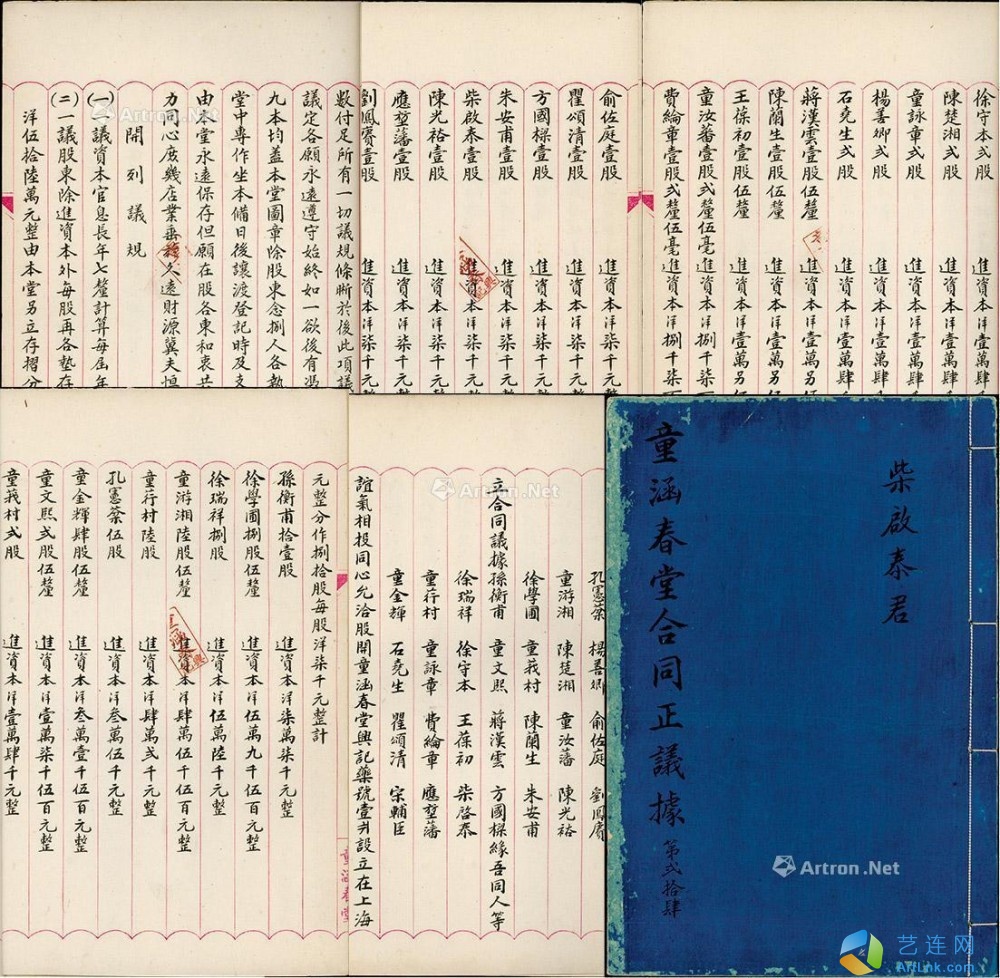 柴啟泰君
童涵春堂合同正議據 第弍拾肆
孔憲棻 楊善卿 俞佐庭 劉鳳賡
童游湘 陳楚湘 童汝藩 陳光裕
徐學圃 童莪村 陳蘭生 朱安甫
立合同議據孫衡甫 童文熙 蔣漢雲 方國樑緣吾同人等
徐瑞祥 徐守本 王葆初 柴啓泰
童行村 童詠章 費綸章 應堃藩
童金輝 石堯生 瞿頌清 宋輔臣
誼氣相投同心允洽股開童涵春堂興記藥號壹爿設立在上海
童涵春堂
元整分作捌拾股每股洋柒千元整計
孫衡甫拾壹股 進資本洋柒萬柒千元整
徐學圃捌股伍釐 進資本洋伍萬九千伍百元整
徐瑞祥捌股 進資本洋伍萬陸千元整
童游湘陸股伍釐 進資本洋肆萬伍千伍百元整
童行村陸股 進資本洋肆萬弍千元整
孔憲棻伍股 進資本洋叁萬伍千元整
童金輝肆股伍釐 進資本洋叁萬壹千伍百元整
童文熙弍股伍釐 進資本洋壹萬柒千伍百元整
童莪村弍股 進資本洋壹萬肆千元整
徐守本弍股 進資本洋壹萬肆
陳楚湘弍股 進資本洋壹萬肆
童詠章弍股 進資本洋壹萬肆
楊善卿弍股 進資本洋壹萬肆
石堯生弍股 進資本洋壹萬肆
蔣漢雲壹股伍釐 進資本洋壹萬另
陳蘭生壹股伍釐 進資本洋壹萬另
王葆初壹股伍釐 進資本洋壹萬另
童汝蕃壹股弍釐伍毫 進資本洋捌千柒
費綸章壹股弍釐伍毫 進資本洋捌千柒
俞佐庭壹股 進資本洋柒千元整
瞿頌清壹股 進資本洋柒千元整
方國樑壹股 進資本洋柒千元整
朱安甫壹股 進資本洋柒千元整
柴啟泰壹股 進資本洋柒千元整
陳光裕壹股 進資本洋柒千元整
應堃藩壹股 進資本洋柒千元整
劉鳳賡壹股 進資本洋柒千元整
數付足所有一切議規條晰於後此項議
議定各願永遠遵守始終如一欲後有憑
九本均蓋本堂圖章除股東念捌人各執
堂中專作坐本備日後讓渡登記時及支
由本堂永遠保存但願在股各東和衷共
力同心庶幾店業垂諸久遠財源冀夫恒
開列議規
(一)一議資本官息長年七釐計算每屆年
(二)一議股東除進資本外每股再各墊存
洋伍拾陸萬元整由本堂另立存摺分
Artron.Net
Artron.Net
Artron.Net
Artron.Net
艺连网
ArtLink.com